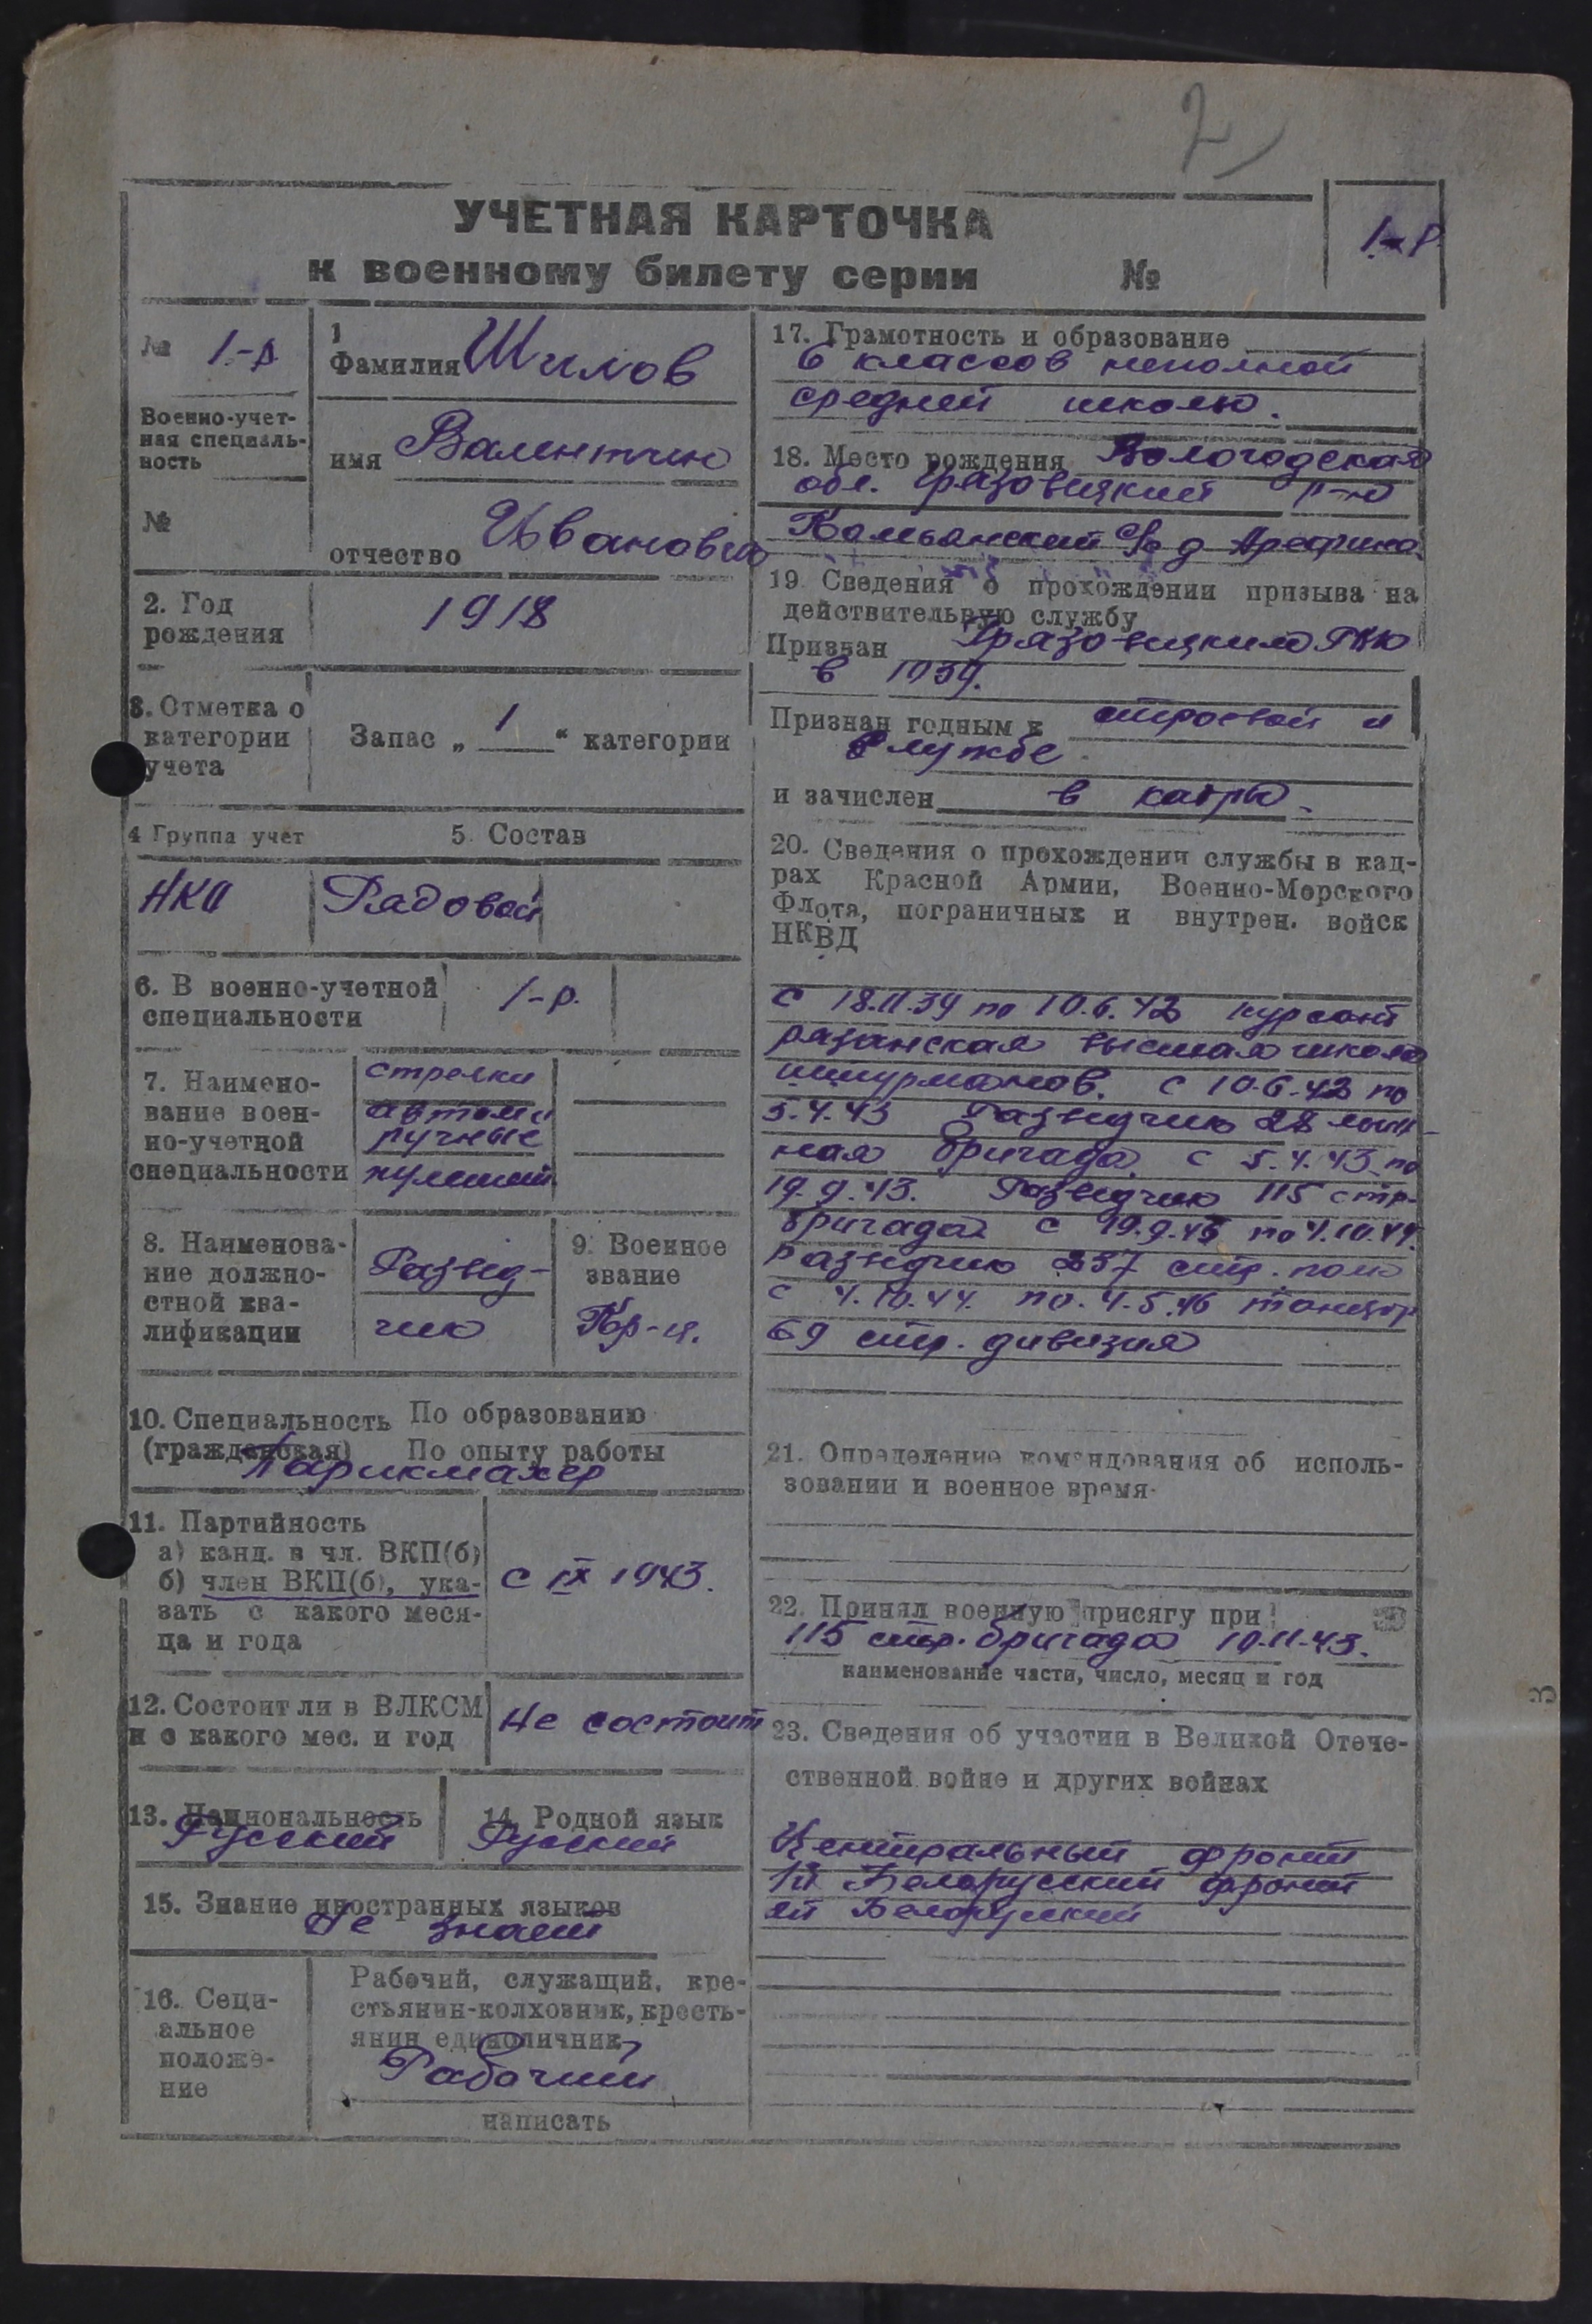 2
УЧЕТНАЯ КАРТОЧКА
к военному билету серии №
1-р
№ 1-р.
Военно-учет-
ная специаль-
ность
№
1
Фамилия Шилов
имя Валентин
отчество Иванович
2. Год
рождения
1918
3. Отметка о
категории
учета
Запас „ 1 “ категории
4 Группа учет
5. Состав
НКО
Рядовой
6. В военно-учетной
специальности
1-р.
7. Наимено-
вание воен-
но-учетной
специальности
стрелки
автом.
ручные
пулемет.
8. Наименова-
ние должно-
стной ква-
лификации
Развед-
чик
9. Военное
звание
Кр-ц.
10. Специальность По образованию
(гражданская) По опыту работы
Парикмахер
11. Партийность
а) канд. в чл. ВКП(б)
б) член ВКП(б), ука-
зать с какого меся-
ца и года
с IX 1943.
12. Состоит ли в ВЛКСМ
и с какого мес. и год
Не состоит
13. Национальность
Русский
14. Родной язык
Русский
15. Знание иностранных языков
Не знает
16. Соци-
альное
положе-
ние
Рабочий, служащий, кре-
стьянин-колхозник, кресть-
янин единоличник
Рабочий
написать
17. Грамотность и образование
6 классов неполной
средней школы.
18. Место рождения Вологодская
обл. Грязовецкий р-н
с/с д Арефино
19. Сведения о прохождении призыва на
действительную службу
Призван Грязовецким РВК
в 1939.
Признан годным к строевой
службе
и зачислен в кадры.
20. Сведения о прохождении службы в кад-
рах Красной Армии, Военно-Морского
Флота, пограничных и внутрен. войск
НКВД
с 18.11.39 по 10.6.42 курсант
рязанская высшая школа
штурманов. с 10.6.42 по
5.4.43 Разведчик 28 лыж-
ная бригада с 5.4.43 по
19.9.43. Разведчик 115 стр.
бригада с 19.9.43 по 4.10.44.
разведчик 237 стр. полк
с 4.10.44. по 4.5.46 танцор
69 стр. дивизия
21. Определение командования об исполь-
зовании и военное время.
22. Принял военную присягу при
115 стр. бригада 10.11.43.
наименование части, число, месяц и год
23. Сведения об участии в Великой Отече-
ственной войне и других войнах
Центральный фронт
1й Белорусский фронт
2й Белорусский
3